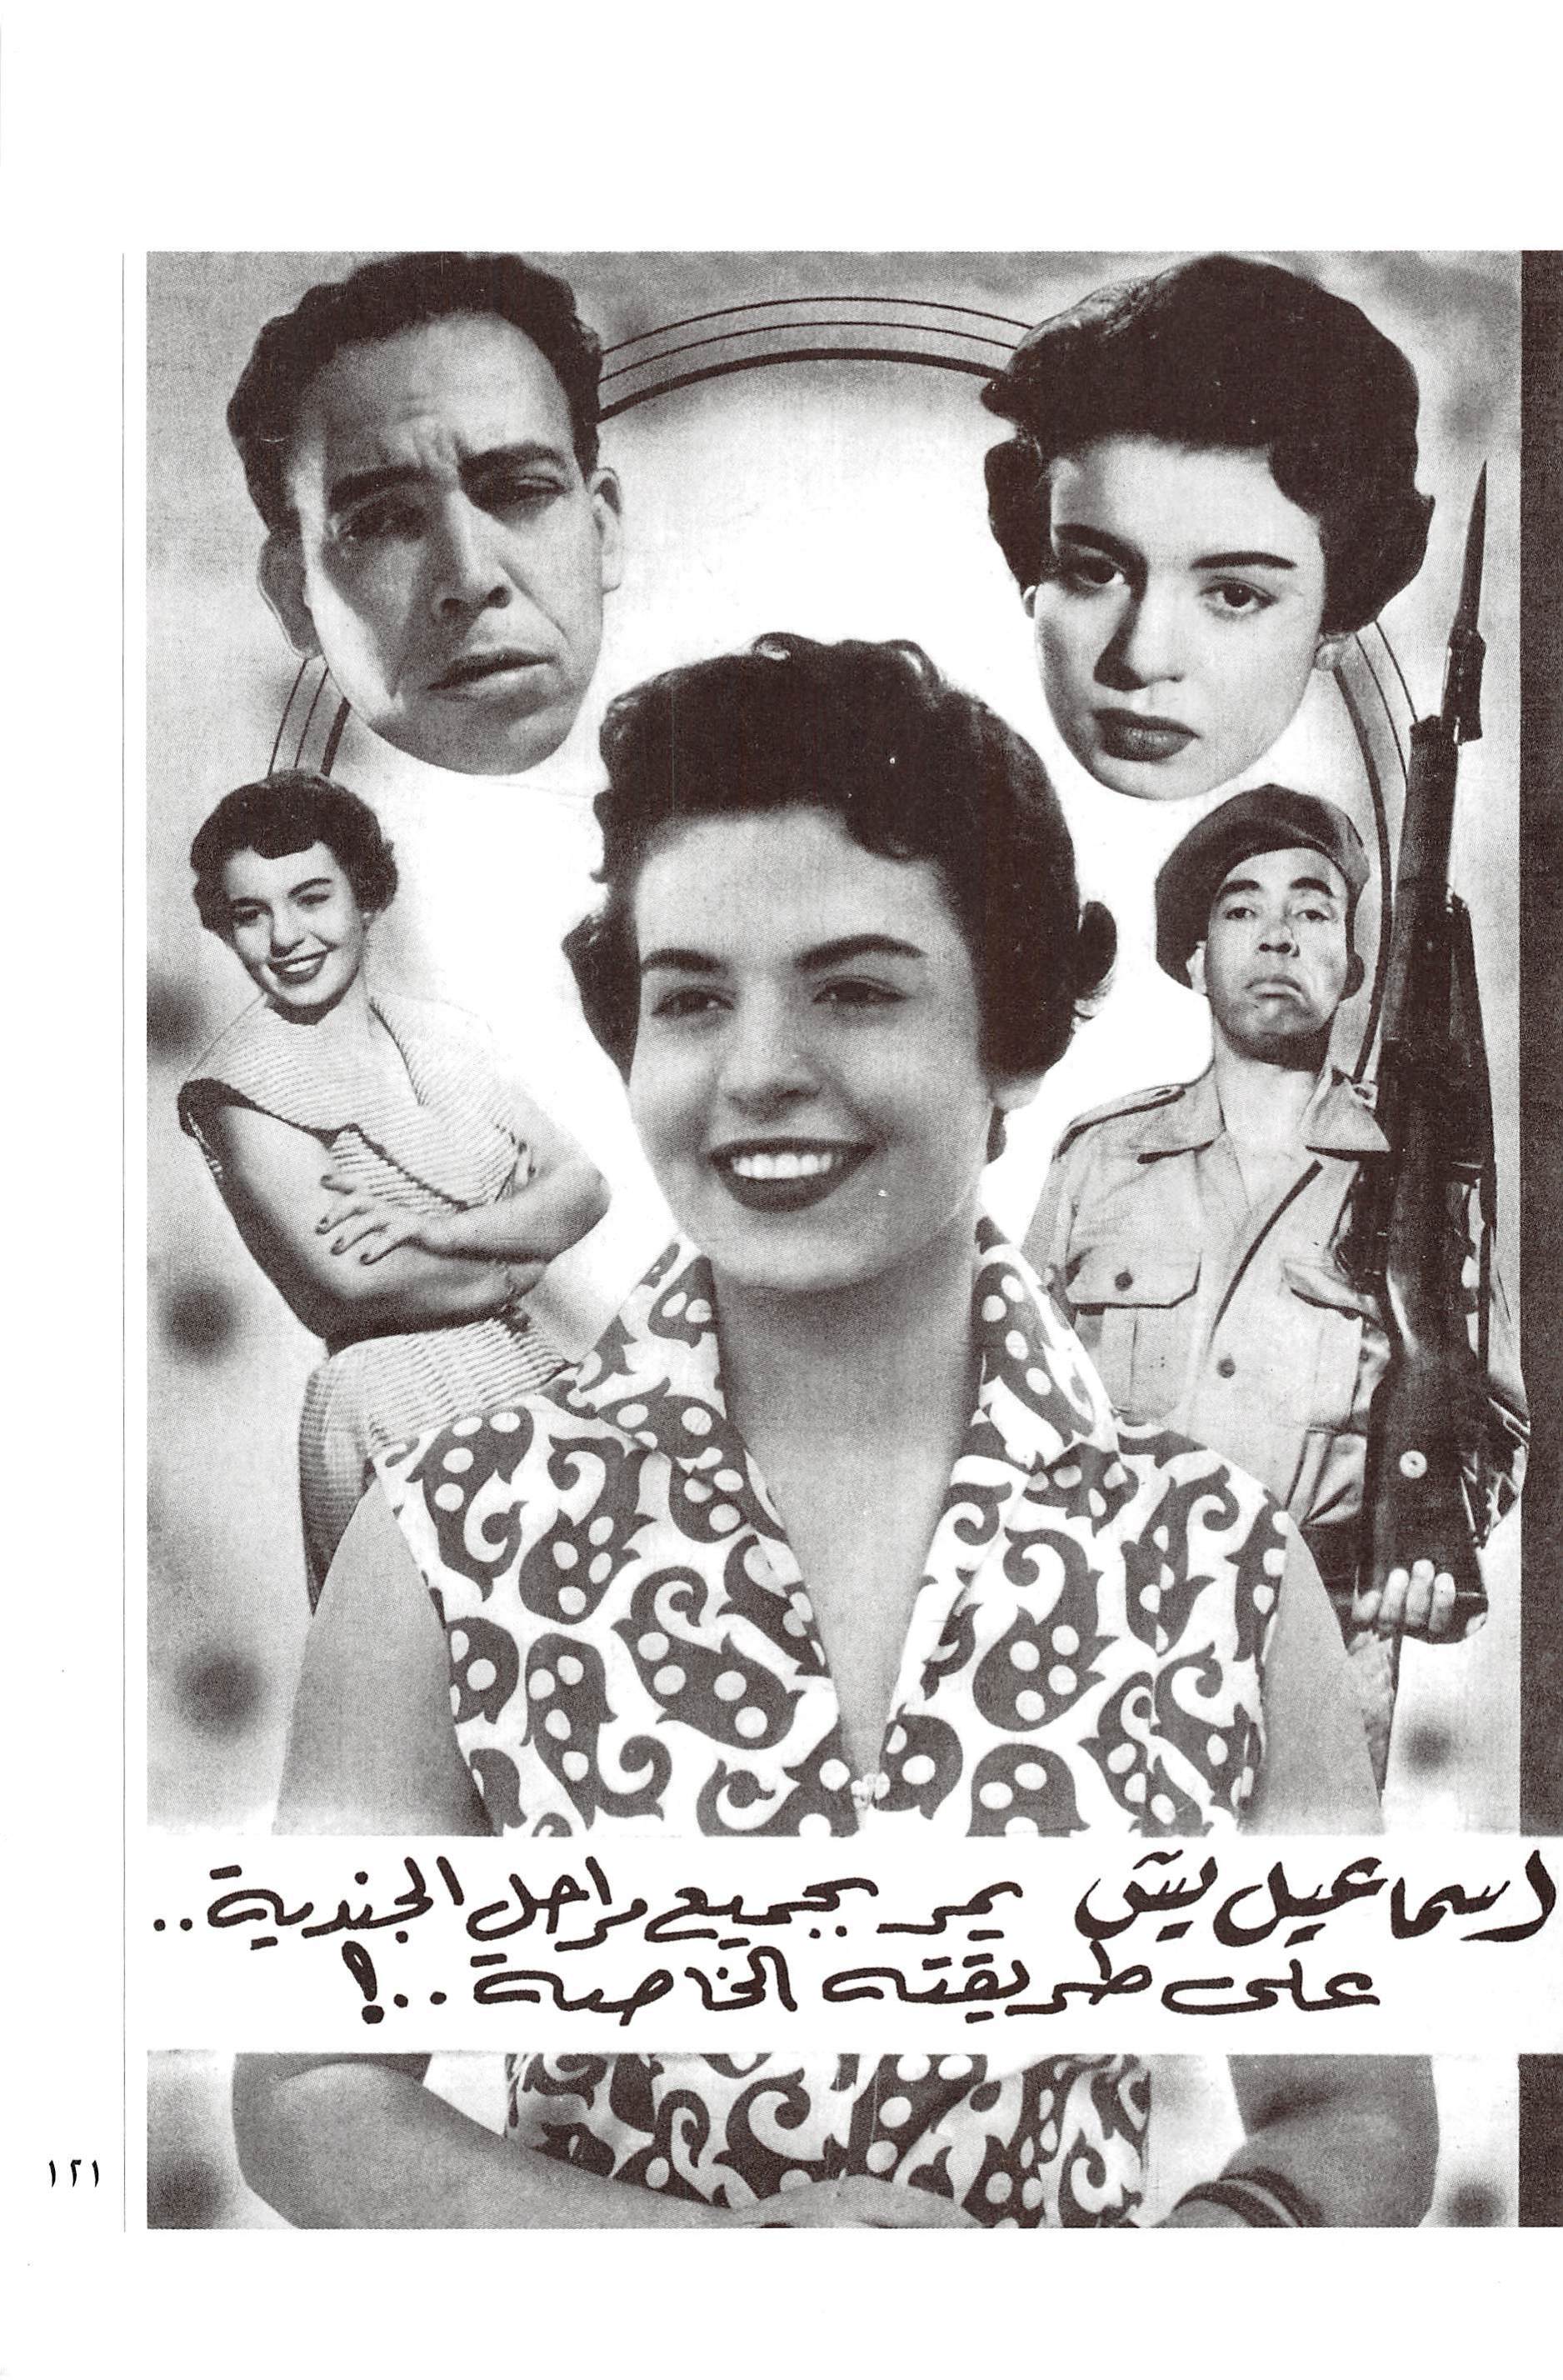 اسماعيل يس يمر بجميع مراحل الجندية..
على طريقته الخاصة..!
١٢١